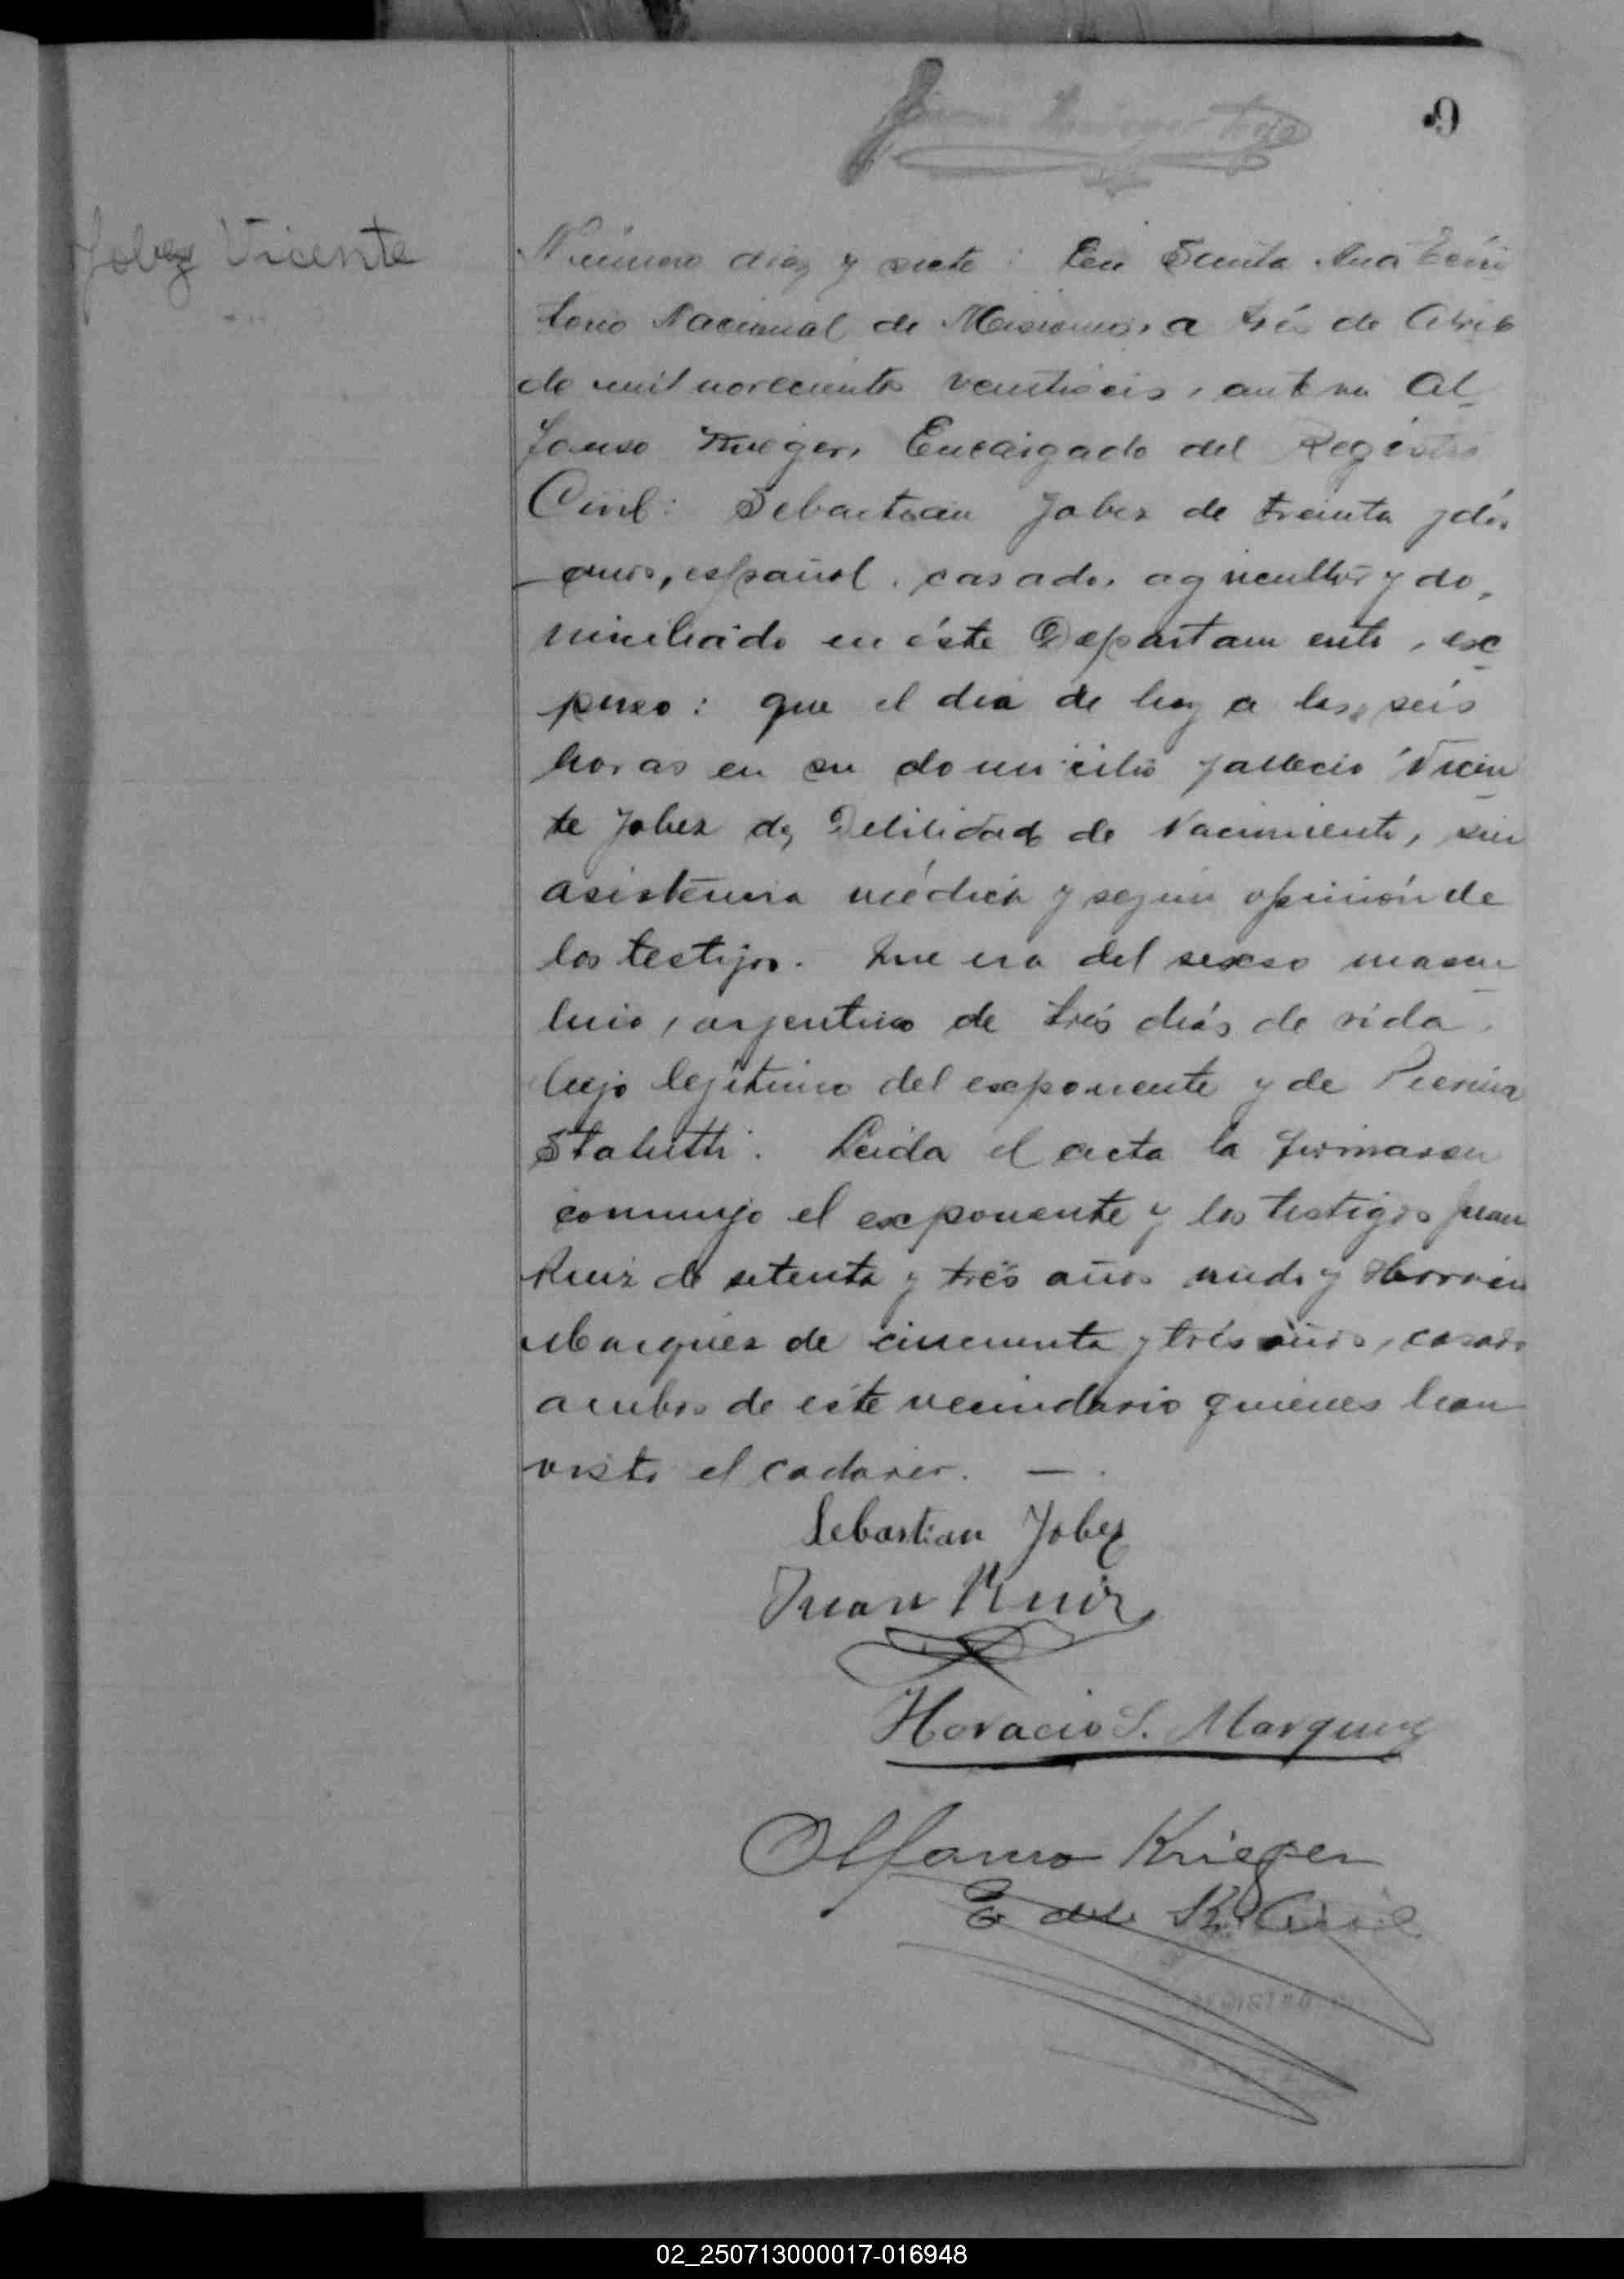 9
Jobez Vicente
Número diez y siete: En Santa Ana Terri
torio Nacional de Misiones, a trés de Abril
de mil novecientos veintiseis, ante mi Al
fonso Krieger, Encargado del Registro
Civil: Sebastian Jobez de treinta y dós
anos, español, casado, agricultor y do,
miciliado en éste Departamento, exc
puso: que el dia de hoy a las seis
horas en su domicilio fallecio Vicen
te Jobez de Debilidad de Nacimiento, sin
asistencia médica y según opinión de
los testijos. Que era del sexso mascu
lino, arjentino de trés diás de vida,
hijo lejitimo del excponente y de Pierina
Stalutti. Leida el acta la firmaron
conmigo el excponente y los testigos Juan
Ruiz de setenta y trés años viudo y
Marquez de cincuenta y trés años, casado
ambos de este vecindario quienes han
visto el cadaver. —.
Sebastian Jobez
Juan Ruiz
Horacio S. Marquez
Alfonso Krieger
E. del R. Civil
02_250713000017-016948